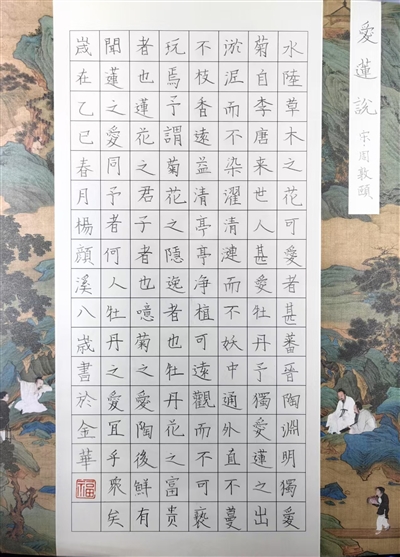 愛蓮說 宋周敦頤
水陸草木之花可愛者甚蕃晉陶淵明獨愛
菊自李唐来世人甚愛牡丹予獨愛蓮之出
淤泥而不染濯清漣而不妖中通外直不蔓
不枝香遠益清亭亭净植可遠觀而不可褻
玩焉予謂菊花之隱逸者也牡丹花之富贵
者也蓮花之君子者也噫菊之愛陶後鮮有
聞蓮之愛同予者何人牡丹之愛宜乎衆矣
歲在乙巳春月楊顔溪八歲書於金華
福